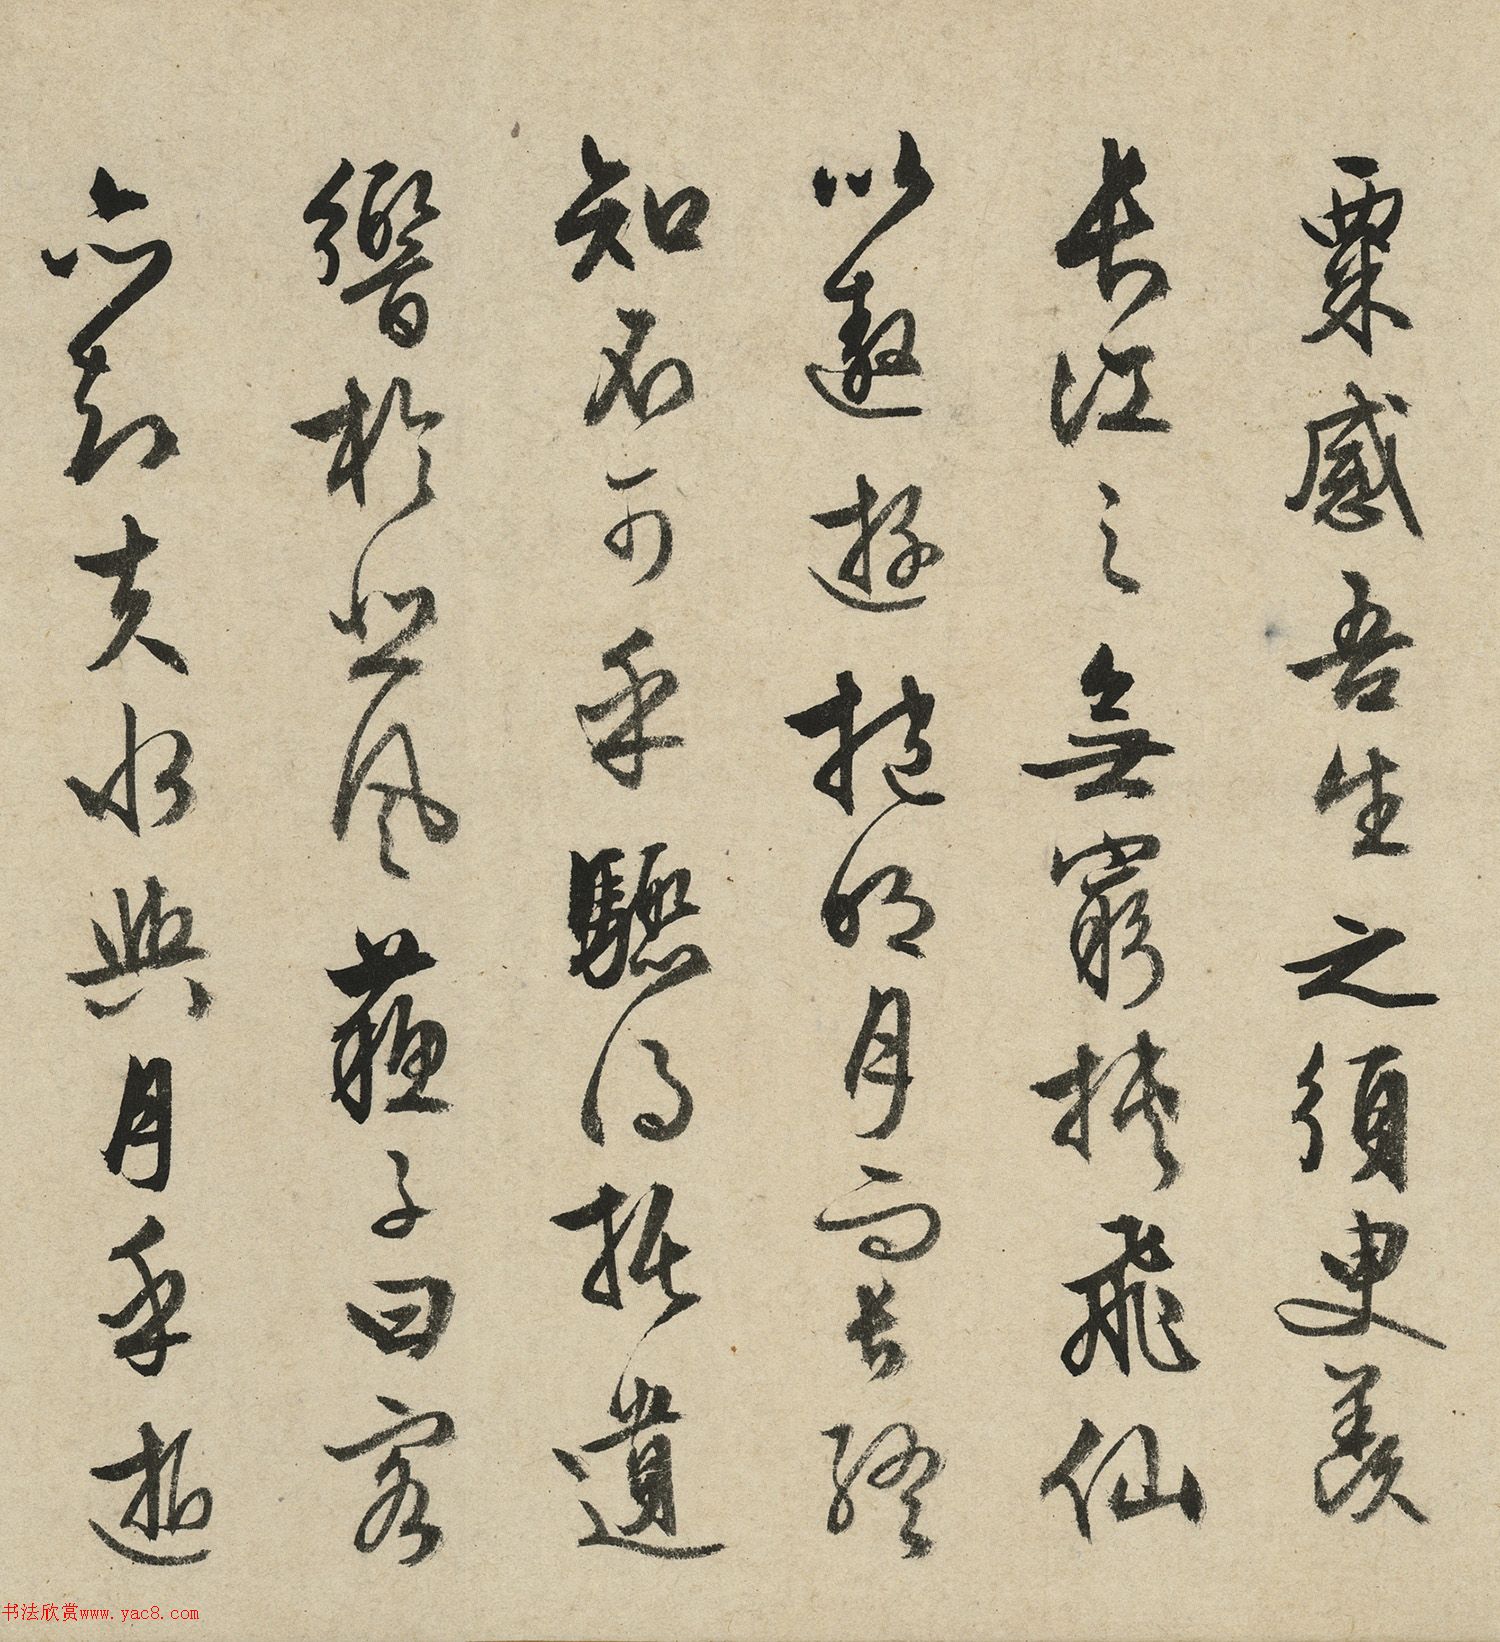 粟感吾生之須臾羨
長江之無窮挾飛仙
以遨遊抱明月而長終
知不可乎驟得托遺
響於悲風蘇子曰客
亦知夫水與月乎逝
书法欣赏www.yac8.com